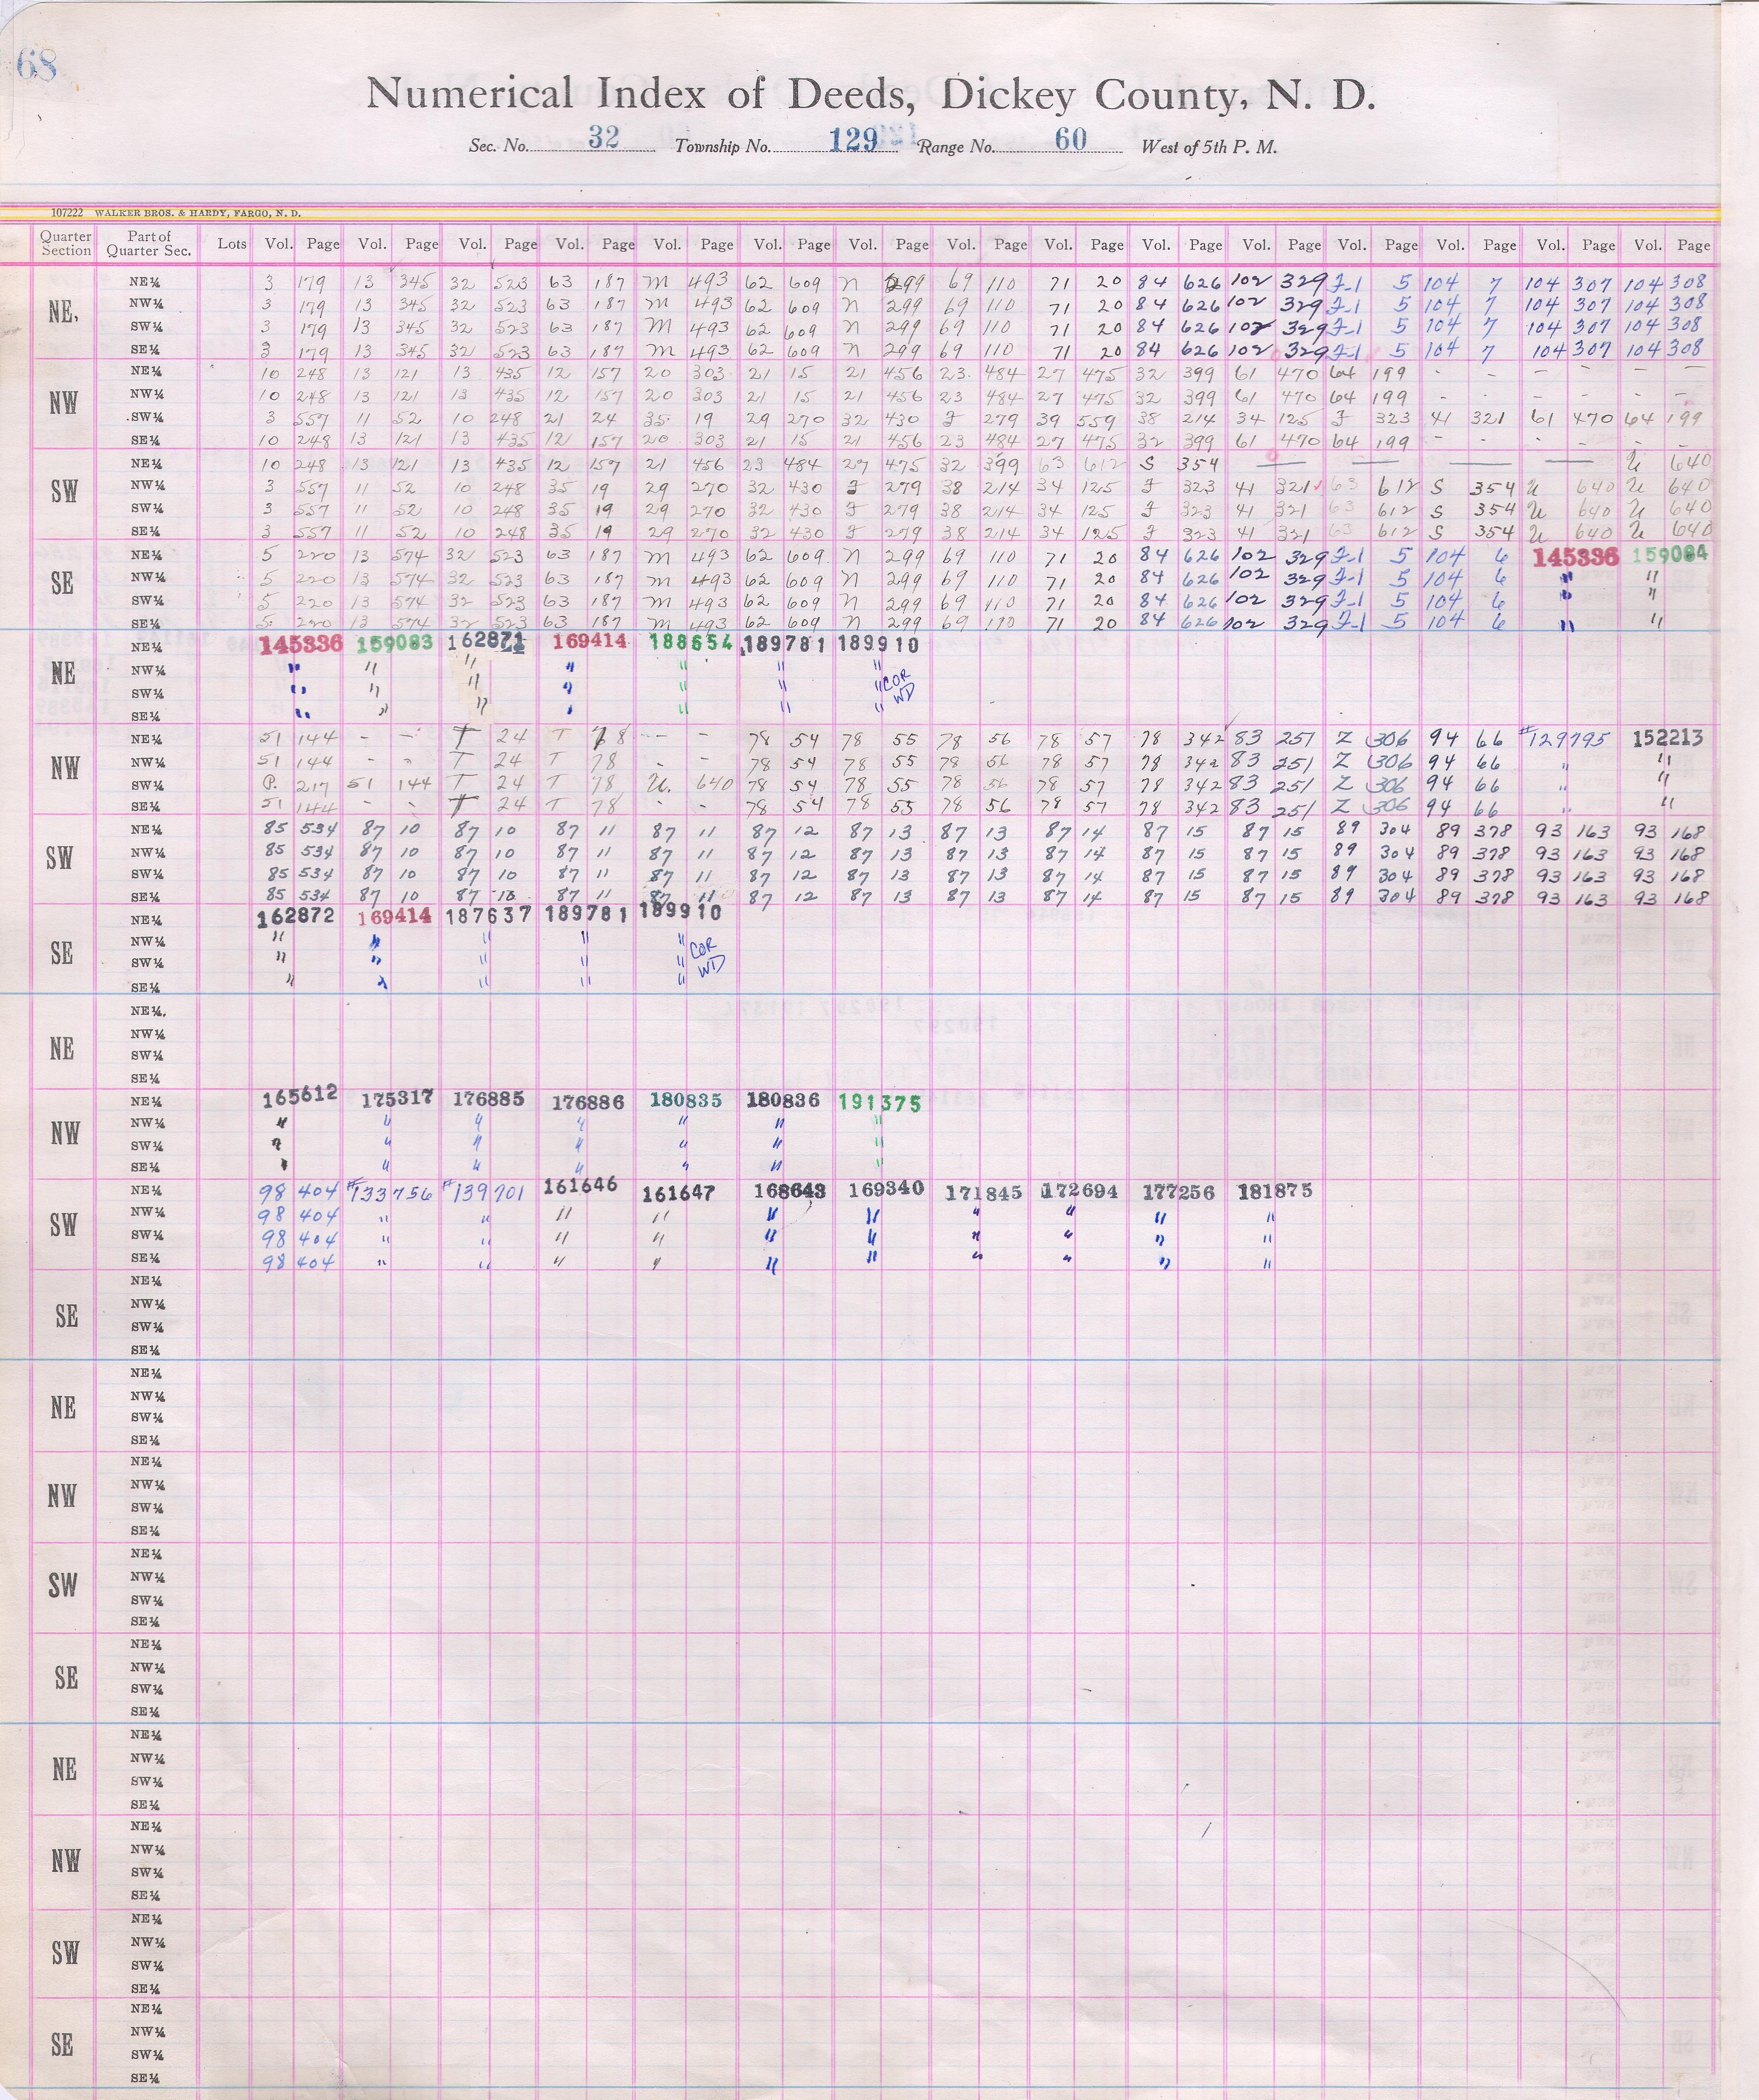 68
Numerical Index of Deeds, Dickey County, N. D.
Sec. No. 32 Township No. 129 Range No. 60 West of 5th P. M.
107222 WALKER BROS. & HARDY, FARGO, N. D.
Quarter Section Part of Quarter Sec. Lots Vol. Page Vol. Page Vol. Page Vol. Page Vol. Page Vol. Page Vol. Page Vol. Page Vol. Page Vol. Page Vol. Page Vol. Page Vol. Page Vol. Page Vol. Page
NE.
NE¼ 3 179 13 345 32 523 63 187 M 493 62 609 N 299 69 110 71 20 84 626 102 329 J-1 5 104 7 104 307 104 308
NW¼ 3 179 13 345 32 523 63 187 M 493 62 609 N 299 69 110 71 20 84 626 102 329 J-1 5 104 7 104 307 104 308
SW¼ 3 179 13 345 32 523 63 187 M 493 62 609 N 299 69 110 71 20 84 626 102 329 J-1 5 104 7 104 307 104 308
SE¼ 3 179 13 345 32 523 63 187 M 493 62 609 N 299 69 110 71 20 84 626 102 329 J-1 5 104 7 104 307 104 308
NW
NE¼ 10 248 13 121 13 435 12 157 20 303 21 15 21 456 23 484 27 475 32 399 61 470 64 199 - - - - - -
NW¼ 10 248 13 121 13 435 12 157 20 303 21 15 21 456 23 484 27 475 32 399 61 470 64 199 - - - - - -
SW¼ 3 557 11 52 10 248 21 24 35 19 29 270 32 430 J 279 39 559 38 214 34 125 J 323 41 321 61 470 64 199
SE¼ 10 248 13 121 13 435 12 157 20 303 21 15 21 456 23 484 27 475 32 399 61 470 64 199 - - - - - -
SW
NE¼ 10 248 13 121 13 435 12 157 21 456 23 484 27 475 32 399 63 612 S 354 — — — — U 640
NW¼ 3 557 11 52 10 248 35 19 29 270 32 430 J 279 38 214 34 125 J 323 41 321 63 612 S 354 U 640 U 640
SW¼ 3 557 11 52 10 248 35 19 29 270 32 430 J 279 38 214 34 125 J 323 41 321 63 612 S 354 U 640 U 640
SE¼ 3 557 11 52 10 248 35 19 29 270 32 430 J 279 38 214 34 125 J 323 41 321 63 612 S 354 U 640 U 640
SE
NE¼ 5 220 13 574 32 523 63 187 M 493 62 609 N 299 69 110 71 20 84 626 102 329 J-1 5 104 6 145336 159084
NW¼ 5 220 13 574 32 523 63 187 M 493 62 609 N 299 69 110 71 20 84 626 102 329 J-1 5 104 6 " "
SW¼ 5 220 13 574 32 523 63 187 M 493 62 609 N 299 69 110 71 20 84 626 102 329 J-1 5 104 6 " "
SE¼ 5 220 13 574 32 523 63 187 M 493 62 609 N 299 69 110 71 20 84 626 102 329 J-1 5 104 6 " "
NE
NE¼ 145336 159083 162871 169414 188654 189781 189910
NW¼ " " " " " " "
SW¼ " " " " " " " COR WD
SE¼ " " " " " " "
NW
NE¼ 51 144 - - T 24 T 78 - - 78 54 78 55 78 56 78 57 78 342 83 251 Z 306 94 66 #129795 152213
NW¼ 51 144 - - T 24 T 78 - - 78 54 78 55 78 56 78 57 78 342 83 251 Z 306 94 66 " "
SW¼ P. 217 51 144 T 24 T 78 U. 640 78 54 78 55 78 56 78 57 78 342 83 251 Z 306 94 66 " "
SE¼ 51 144 - - T 24 T 78 - - 78 54 78 55 78 56 78 57 78 342 83 251 Z 306 94 66 " "
SW
NE¼ 85 534 87 10 87 10 87 11 87 11 87 12 87 13 87 13 87 14 87 15 87 15 89 304 89 378 93 163 93 168
NW¼ 85 534 87 10 87 10 87 11 87 11 87 12 87 13 87 13 87 14 87 15 87 15 89 304 89 378 93 163 93 168
SW¼ 85 534 87 10 87 10 87 11 87 11 87 12 87 13 87 13 87 14 87 15 87 15 89 304 89 378 93 163 93 168
SE¼ 85 534 87 10 87 10 87 11 87 11 87 12 87 13 87 13 87 14 87 15 87 15 89 304 89 378 93 163 93 168
SE
NE¼ 162872 169414 187637 189781 189910
NW¼ " " " " "
SW¼ " " " " " COR WD
SE¼ " " " " "
NE
NE¼.
NW¼
SW¼
SE¼
NW
NE¼ 165612 175317 176885 176886 180835 180836 191375
NW¼ " " " " " " "
SW¼ " " " " " " "
SE¼ " " " " " " "
SW
NE¼ 98 404 #133756 #139701 161646 161647 168643 169340 171845 172694 177256 181875
NW¼ 98 404 " " " " " " " " " "
SW¼ 98 404 " " " " " " " " " "
SE¼ 98 404 " " " " " " " " " "
SE
NE¼
NW¼
SW¼
SE¼
NE
NE¼
NW¼
SW¼
SE¼
NW
NE¼
NW¼
SW¼
SE¼
SW
NE¼
NW¼
SW¼
SE¼
SE
NE¼
NW¼
SW¼
SE¼
NE
NE¼
NW¼
SW¼
SE¼
NW
NE¼
NW¼
SW¼
SE¼
SW
NE¼
NW¼
SW¼
SE¼
SE
NE¼
NW¼
SW¼
SE¼